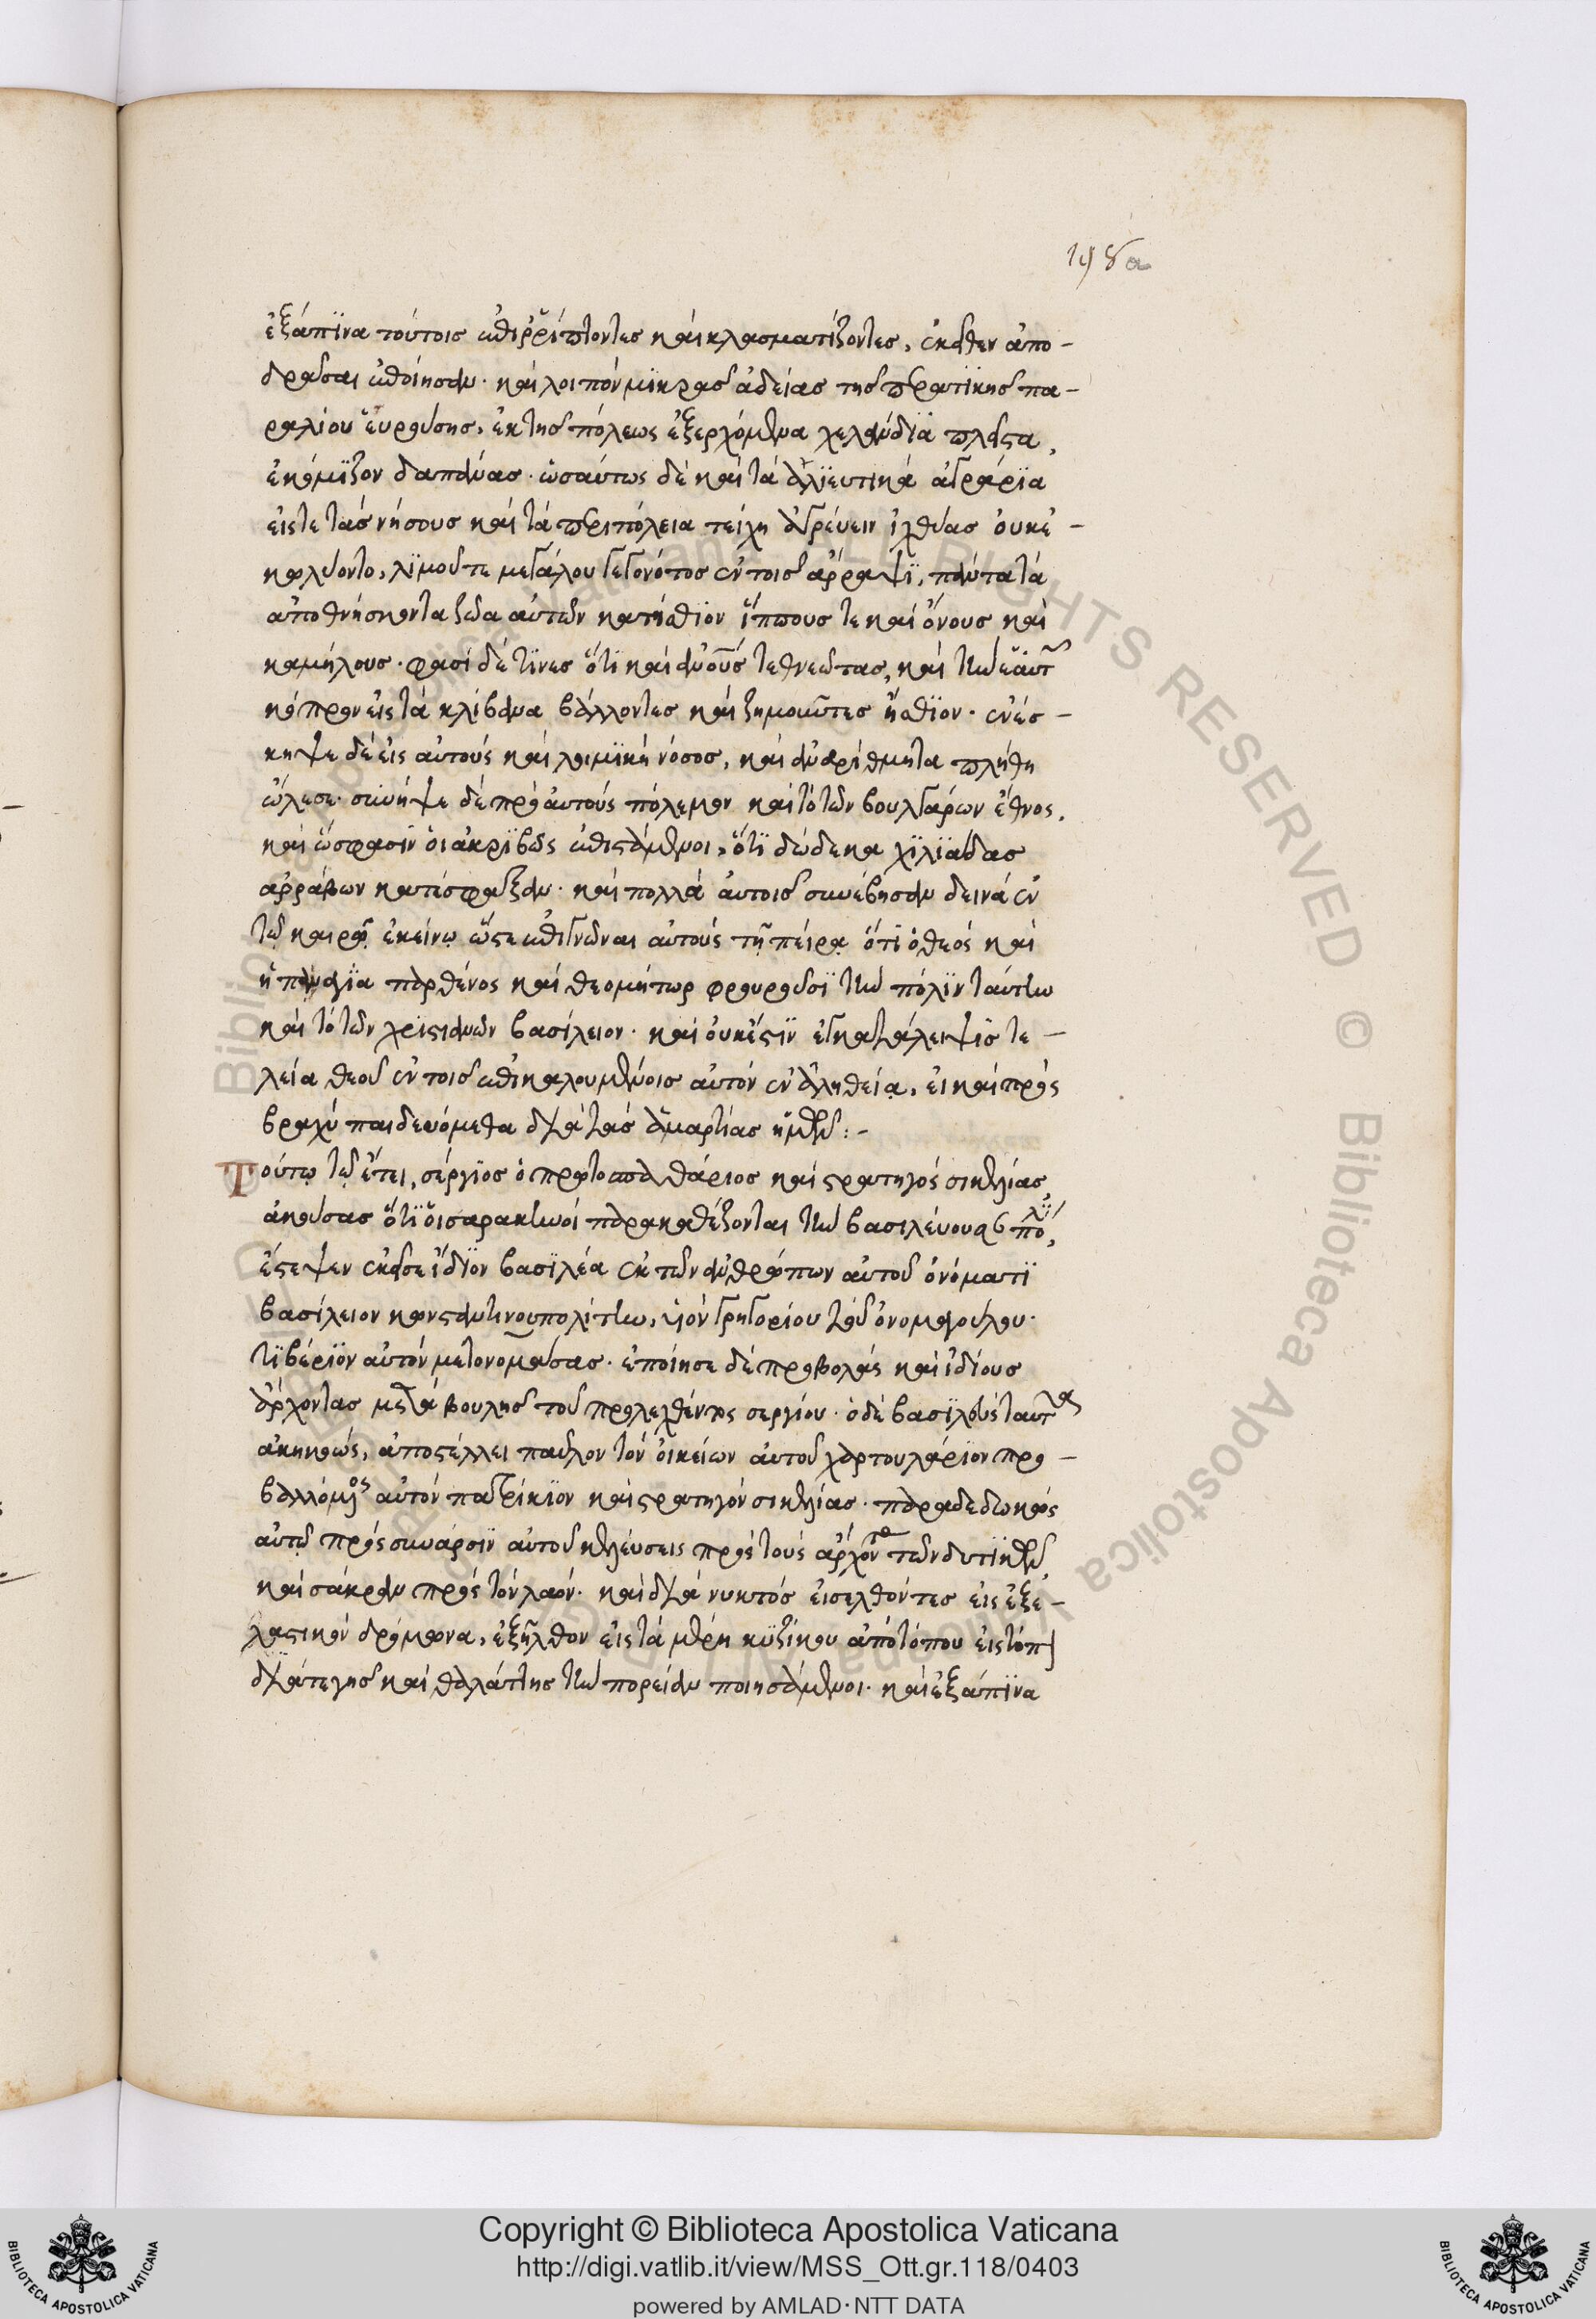 198a
ἐξάπϊνα τούτοις ἐπιῤῥίπτοντες καὶ κλασματίζοντες, ἐκεῖθεν ἀπο-
δρᾶσαι ἐποίησαν· καὶ λοιπὸν μϊκρᾶς ἀδείας τῆς περατϊκῆς πα-
ραλίου εὑρούσης, ἐκ τῆς πόλεως ἐξερχόμενα χελάνδϊα πλεῖστα,
ἐκόμϊζον δαπάνας· ὡσαύτως δὲ καὶ τὰ ἁλϊευτικὰ ἀγράρϊα
εἴς τε τὰς νήσους καὶ τὰ περιπόλεια τείχη ἀγρεύειν ἰχθύας οὐκ ἐ-
κωλύοντο, λϊμοῦ τε μεγάλου γεγονότος ἐν τοῖς ἄῤῥαψϊ, πάντα τὰ
ἀποθνήσκοντα ζῶα αὐτῶν κατήσθϊον ἵππους τε καὶ ὄνους καὶ
καμήλους· φασὶ δέ τϊνες ὅτϊ καὶ ἀνοὺς τεθνεῶτας, καὶ τὴν ἑαυτῶν
κόπρον εἰς τὰ κλίβανα βάλλοντες καὶ ζημοῦντες ἤσθϊον· ἐνέσ-
κηψε δὲ εἰς αὐτοὺς καὶ λοιμϊκὴ νόσος, καὶ ἀναρίθμητα πλήθη
ὤλεσε· συνῆψε δὲ πρὸς αὐτοὺς πόλεμον καὶ τὸ τῶν βουλγάρων ἔθνος,
καὶ ὥς φασϊν οἱ ἀκρϊβῶς ἐπιστάμενοι, ὅτϊ δώδεκα χϊλϊάδας
ἀῤῥάβων κατέσφαξαν· καὶ πολλὰ αὐτοῖς συνέβησαν δεινὰ ἐν
τῷ καιρῷ ἐκείνῳ ὥστε ἐπιγνῶναι αὐτοὺς τῇ πείρᾳ ὅτϊ ὁ θεὸς καὶ
ἡ παναγϊα παρθένος καὶ θεομήτωρ φρουροῦσϊ τὴν πόλϊν ταύτην
καὶ τὸ τῶν χρϊστιανῶν βασίλειον· καὶ οὐκ ἔστϊν ἐγκατάλειψϊς τε-
λεία θεοῦ ἐν τοῖς ἐπικαλουμένοις αὐτὸν ἐν ἀληθείᾳ, εἰ καὶ πρὸς
βραχὺ παιδευόμεθα διὰ τὰς ἁμαρτίας ἡμῶν:-
Τούτῳ τῷ ἔτει, σέργϊος ὁ πρωτοσπαθάριος καὶ στρατηγὸς σικελίας,
ἀκούσας ὅτϊ οἱ σαρακηνοὶ παρακαθέζονται τὴν βασιλεύουσαν πόλϊν,
ἔστεψεν ἐκεῖσε ἴδϊον βασϊλέα ἐκ τῶν ἀνθρώπων αὐτοῦ ὀνόματϊ
βασίλειον κωνσταντινουπολίτην, υἱὸν γρηγορίου τοῦ ὀνομαγούλου·
τϊβέρϊον αὐτὸν μετονομάσας· ἐποίησε δὲ προβολὰς καὶ ἰδίους
ἄρχοντας μετὰ βουλῆς τοῦ προλεχθέντος σεργίου· ὁ δὲ βασϊλεὺς ταῦτα
ἀκηκοώς, ἀποστέλλει παῦλον τὸν οἰκείων αὐτοῦ χαρτουλάρϊον προ-
βαλλόμενος αὐτὸν πατρίκϊον καὶ στρατηγὸν σικελίας· παραδεδωκὼς
αὐτῷ πρὸς συνάρσϊν αὐτοῦ κελεύσεις πρὸς τοὺς ἄρχοντας τῶν δυτϊκῶν,
καὶ σάκραν πρὸς τὸν λαόν· καὶ διὰ νυκτὸς εἰσελθόντες εἰς ἐξε-
λαστικὸν δρόμωνα, ἐξῆλθον εἰς τὰ μέρη κϋζίκου ἀπὸ τόπου εἰς τόπον
διά τε γῆς καὶ θαλάττης τὴν πορείαν ποιησάμενοι· καὶ ἐξάπϊνα
Copyright © Biblioteca Apostolica Vaticana
http://digi.vatlib.it/view/MSS_Ott.gr.118/0403
powered by AMLAD·NTT DATA